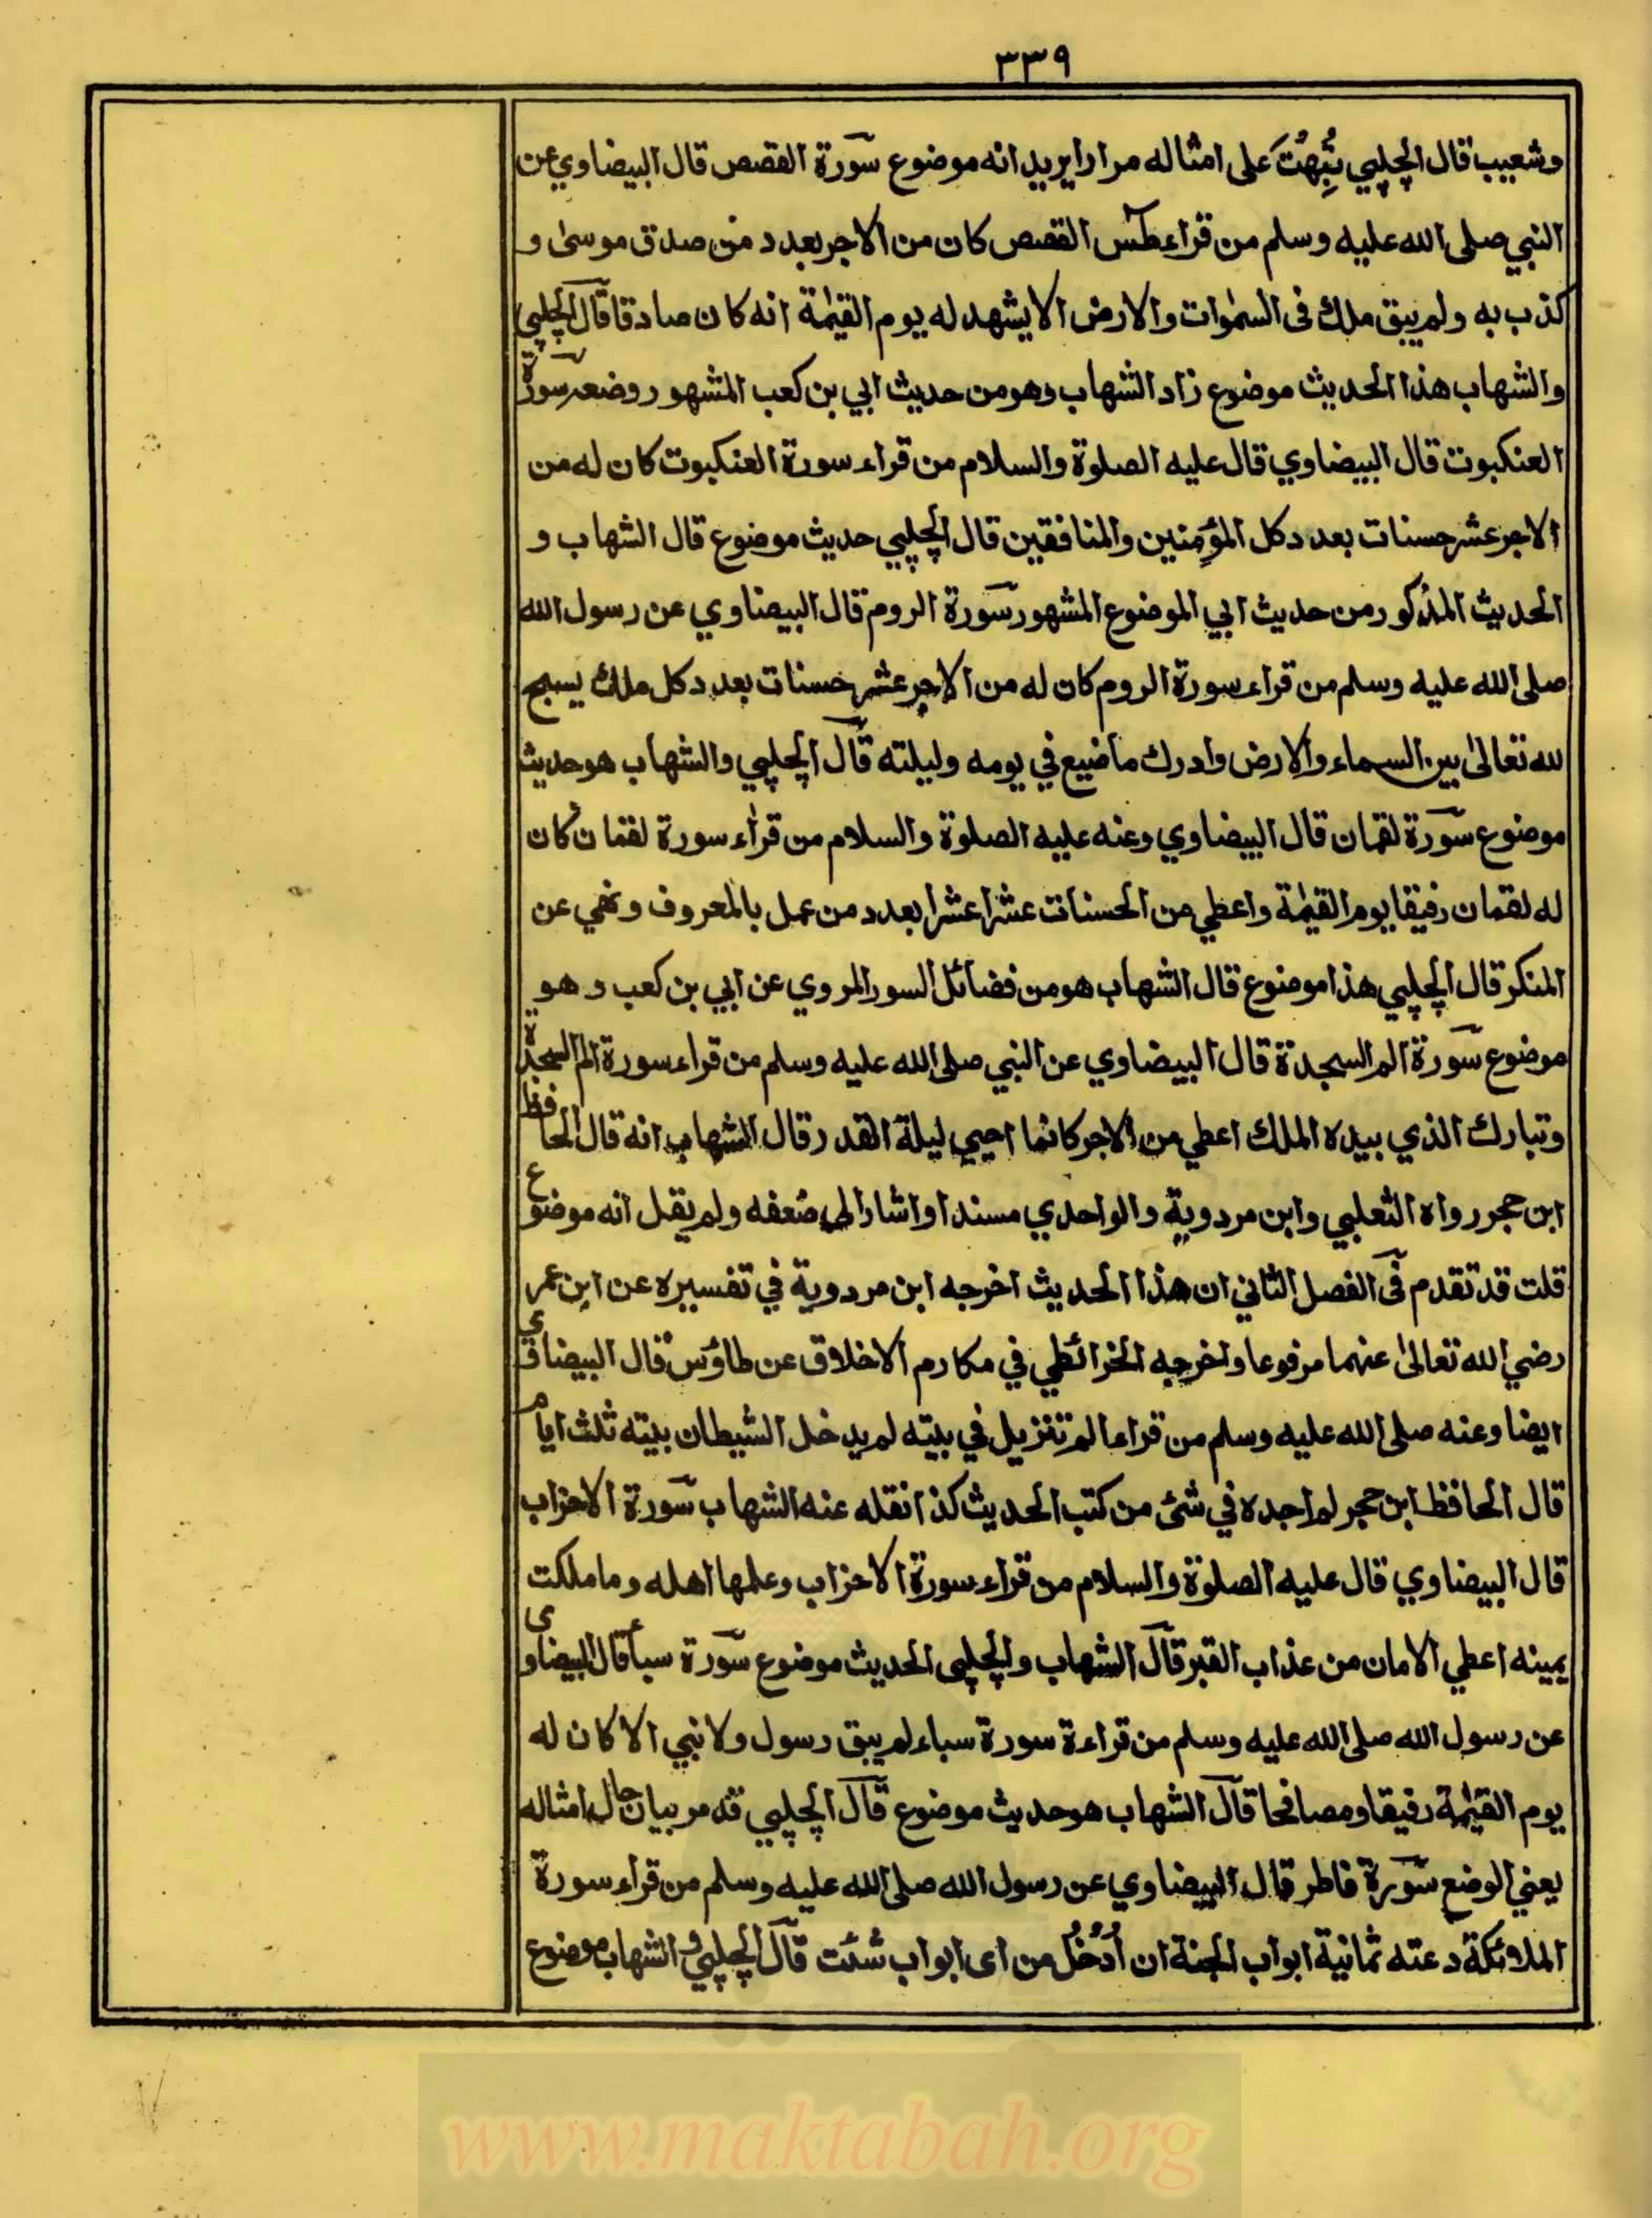 ٣٣٩
وشعيب قال الچلپي نُبِّهْتَ على امثاله مرارا يريد انه موضوع سورة القصص قال البيضاوي عن
النبي صلى الله عليه وسلم من قراء طٰسٓ القصص كان من الاجر بعدد من صدق موسىٰ و
كذب به ولم يبق ملك فى السمٰوات والارض الا يشهد له يوم القيٰمة انه كان صادقا قال الچلپي
والشهاب هذا الحديث موضوع زاد الشهاب وهو من حديث ابي بن كعب المشهور وضعه سورة
العنكبوت قال البيضاوي قال عليه الصلوة والسلام من قراء سورة العنكبوت كان له من
الاجر عشر حسنات بعدد كل المؤمنين والمنافقين قال الچلپي حديث موضوع قال الشهاب و
الحديث المذكور من حديث ابي الموضوع المشهور سورة الروم قال البيضاوي عن رسول الله
صلى الله عليه وسلم من قراء سورة الروم كان له من الاجر عشر حسنات بعدد كل ملك يسبح
لله تعالىٰ بين السماء والارض وادرك ما ضيع في يومه وليلته قال الچلپي والشهاب هو حديث
موضوع سورة لقمان قال البيضاوي وعنه عليه الصلوة والسلام من قراء سورة لقمان كان
له لقمان رفيقا يوم القيٰمة واعطي من الحسنات عشرا عشرا بعدد من عمل بالمعروف ونهي عن
المنكر قال الچلپي هذا موضوع قال الشهاب هو من فضائل السور المروي عن ابي بن كعب وهو
موضوع سورة الم السجدة قال البيضاوي عن النبي صلى الله عليه وسلم من قراء سورة الم السجدة
وتبارك الذي بيده الملك اعطي من الاجر كانما احيي ليلة القدر قال الشهاب انه قال الحافظ
ابن حجر رواه الثعلبي وابن مردوية والواحدي مسندا واشار الى ضعفه ولم يقل انه موضوع
قلت قد تقدم فى الفصل الثاني ان هذا الحديث اخرجه ابن مردوية في تفسيره عن ابن عمر
رضي الله تعالىٰ عنهما مرفوعا واخرجه الخرائطي في مكارم الاخلاق عن طاؤس قال البيضاوي
ايضا وعنه صلى الله عليه وسلم من قراء الم تنزيل في بيته لم يدخل الشيطان بيته ثلث ايام
قال الحافظ ابن حجر لم اجده في شئ من كتب الحديث كذا نقله عنه الشهاب سورة الاحزاب
قال البيضاوي قال عليه الصلوة والسلام من قراء سورة الاحزاب وعلمها اهله وما ملكت
يمينه اعطي الامان من عذاب القبر قال الشهاب والچلپي الحديث موضوع سورة سبأ قال البيضاوي
عن رسول الله صلى الله عليه وسلم من قراءة سورة سباء لم يبق رسول ولا نبي الا كان له
يوم القيٰمة رفيقا ومصافحا قال الشهاب هو حديث موضوع قال الچلپي قد مر بيان حال امثاله
يعني الوضع سورة فاطر قال البيضاوي عن رسول الله صلى الله عليه وسلم من قراء سورة
الملائكة دعته ثمانية ابواب الجنة ان اُدْخُلْ من اى ابواب شئت قال الچلپي والشهاب موضوع
www.maktabah.org